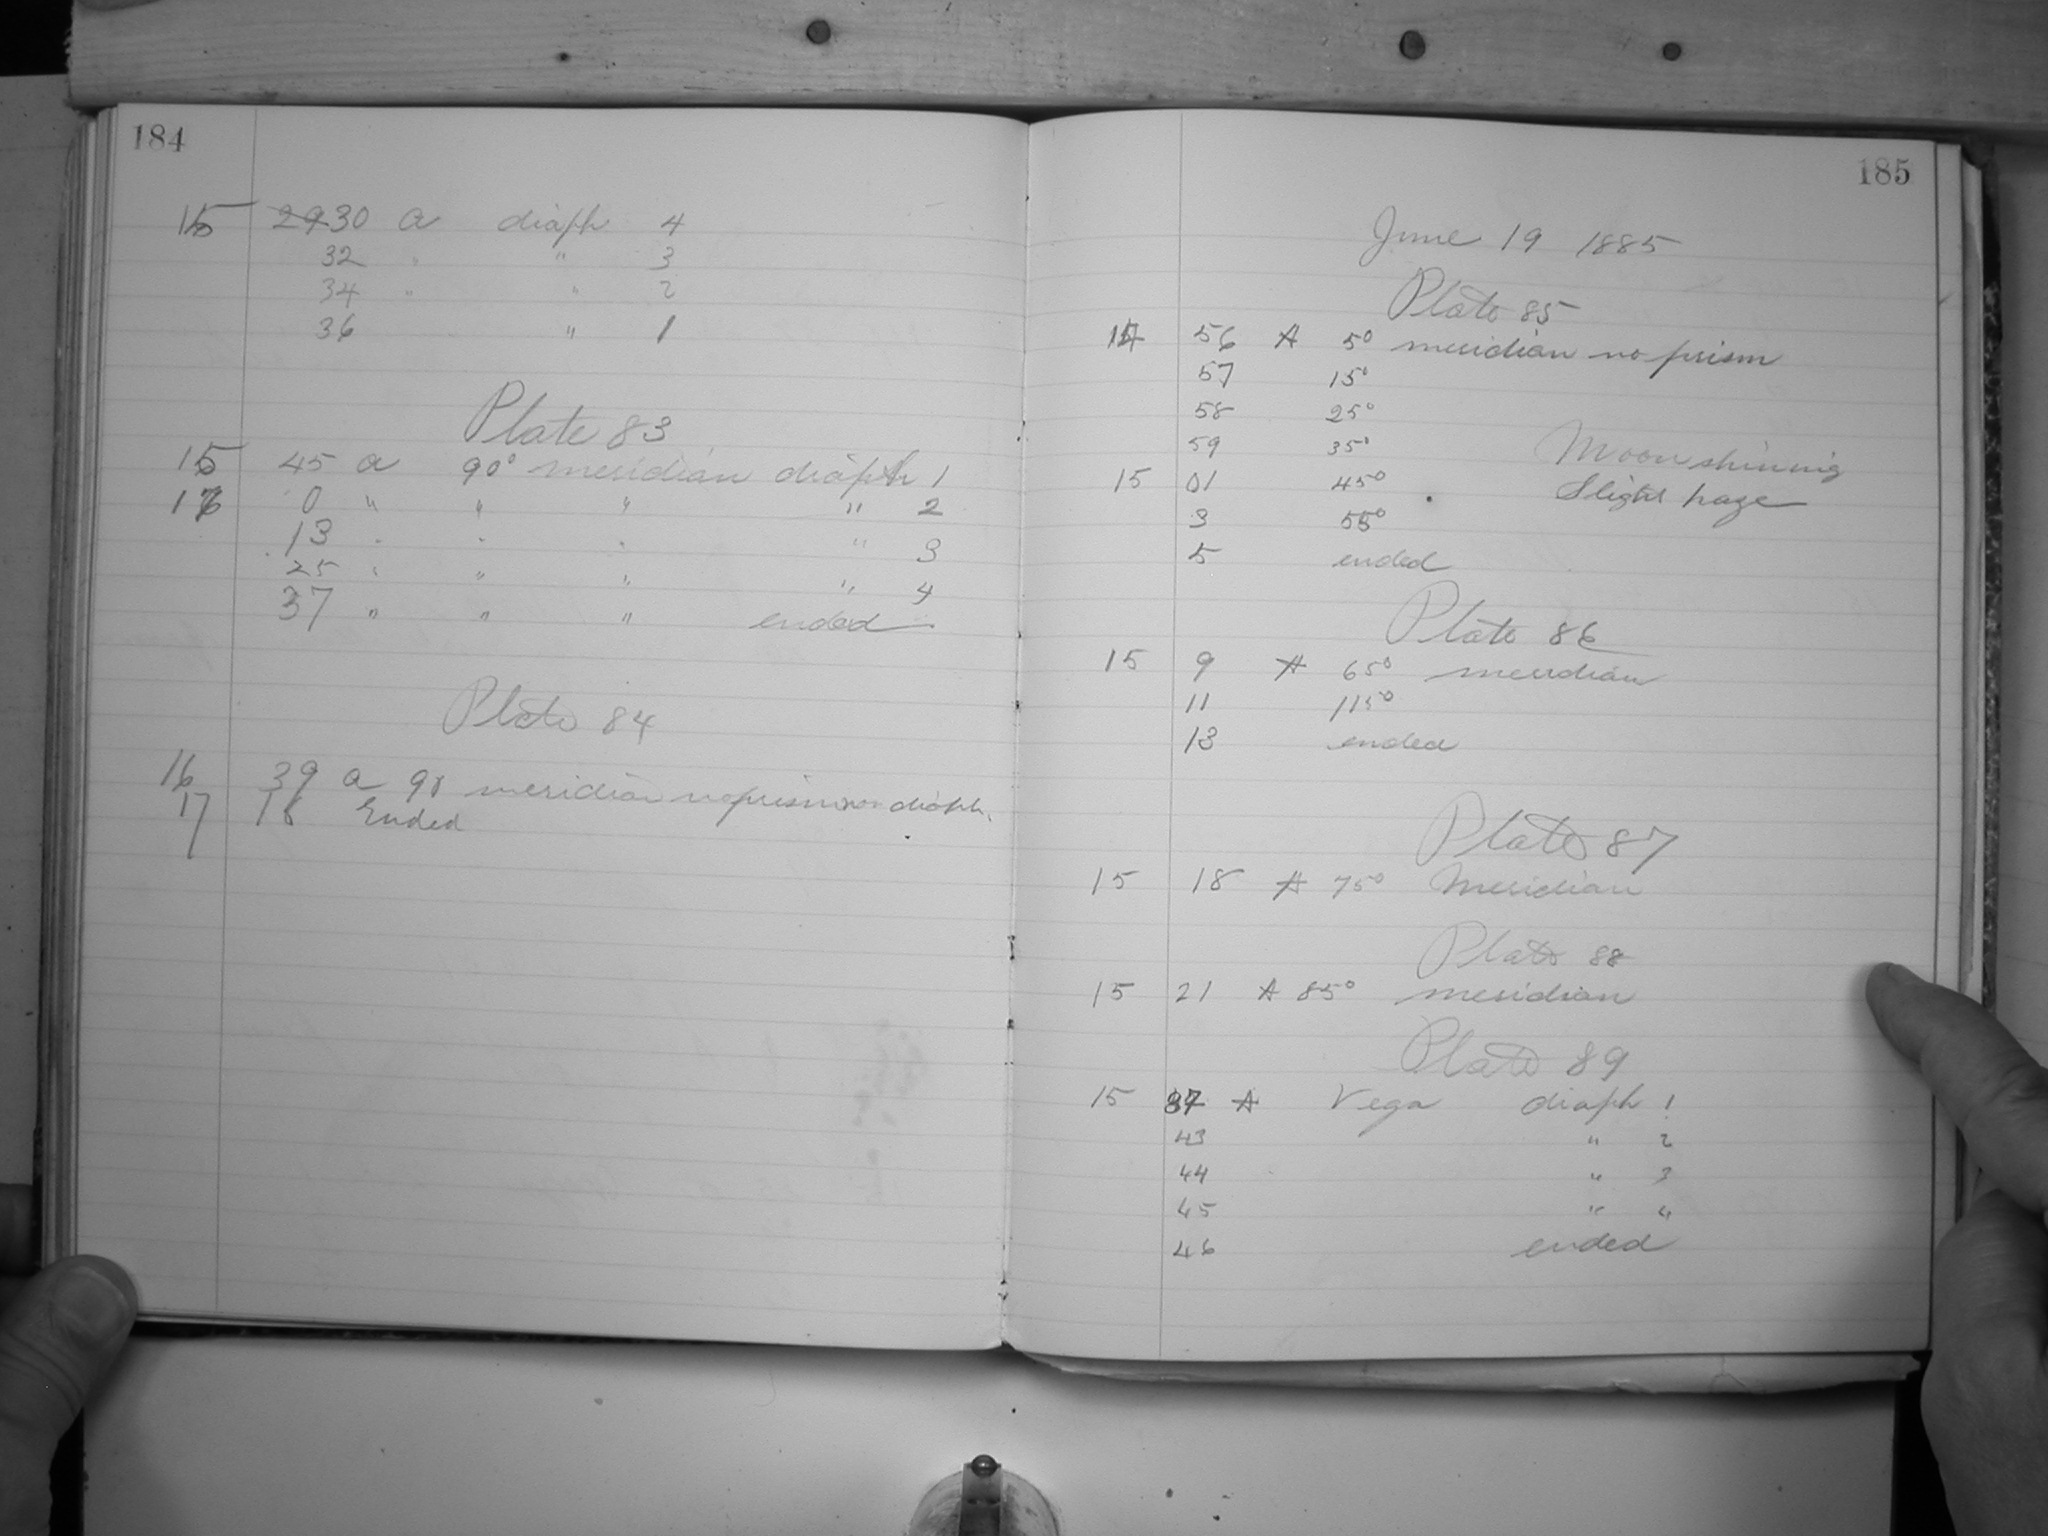 184
15 30 a diaph 4
32 " " 3
34 " " 2
36 " 1
Plate 83
15 45 a 90° meridian diaph 1
16 0 " " " " 2
13 " " " " 3
25 " " " " 4
37 " " " ended
Plate 84
16 39 a 90 meridian no prism nor diaph.
17 16 Ended
185
June 19 1885
Plate 85
14 56 A 5° meridian no prism
57 15°
58 25°
59 35° Moon shining
15 01 45° Slight haze
3 55°
5 ended
Plate 86
15 9 A 65° meridian
11 115°
13 ended
Plate 87
15 18 A 75° Meridian
Plate 88
15 21 A 85° meridian
Plate 89
15 37 A Vega diaph 1
43 " 2
44 " 3
45 " 4
46 ended